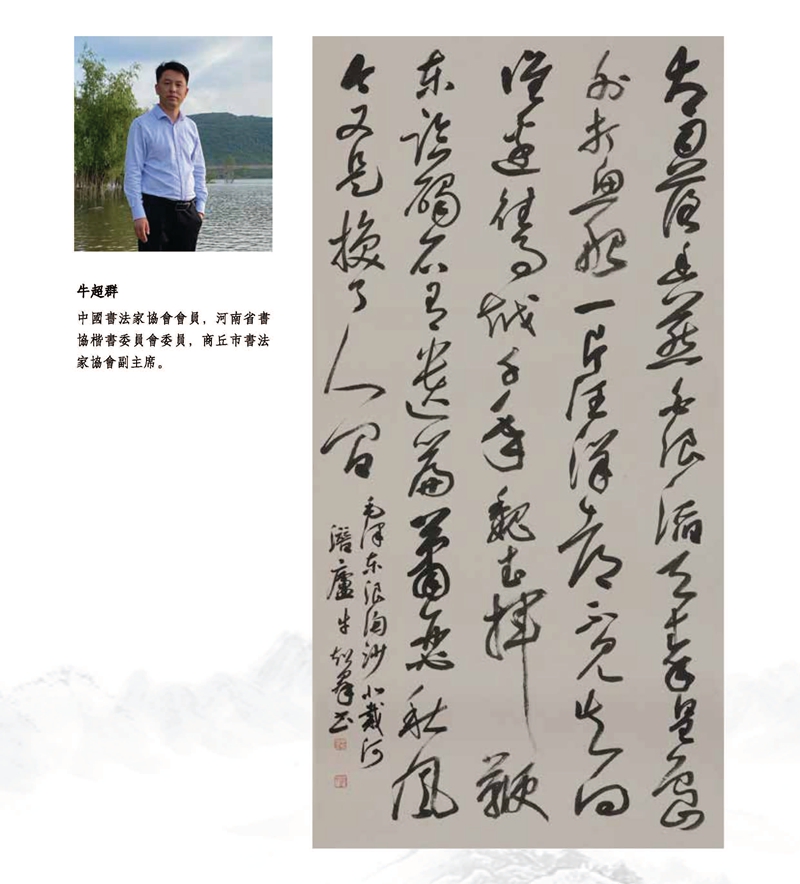 牛超群
中國書法家協會會員，河南省書
協楷書委員會委員，商丘市書法
家協會副主席。
大雨落幽燕白浪滔天秦皇島
外打魚船一片汪洋都不見知向
誰邊往事越千年魏武揮鞭
東臨碣石有遺篇蕭瑟秋風
今又是換了人間
毛澤東浪淘沙北戴河
潛廬牛超群書